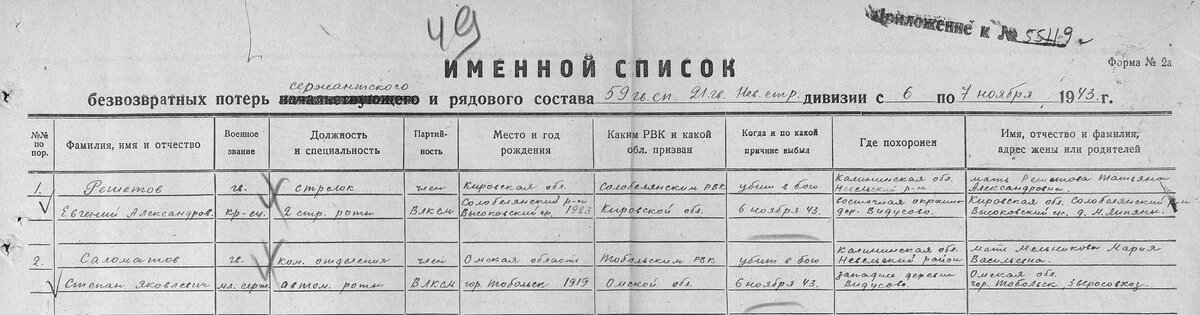 49
Приложение к № 5549
ИМЕННОЙ СПИСОК
Форма № 2а
сержантского
безвозвратных потерь начальствующего и рядового состава 59 гв. сп. 21 гв. Нев. стр. дивизии с 6 по 7 ноября 1943 г.
№№ по пор. Фамилия, имя и отчество Военное звание Должность и специальность Партийность Место и год рождения Каким РВК и какой обл. призван Когда и по какой причине выбыл Где похоронен Имя, отчество и фамилия, адрес жены или родителей
1. Решетов гв. стрелок член Кировская обл. Солобелянским РВК убит в бою Калининская обл. Невельский р-н мать Решетова Татьяна Александровна.
Евгений Александров. кр-ец 2 стр. роты ВЛКСМ Солобелянский р-н Высоковский с/с 1923 Кировской обл. 6 ноября 43. восточная окраина дер. Видусово. Кировская обл. Солобелянский р-н Высоковский с/с, д. М. Липяны.
2. Саломатов гв. ком. отделения член Омская область Тобольским РВК убит в бою Калининская обл. Невельский район мать Мельникова Мария Васильевна.
Степан Яковлевич мл. серж. автом. роты ВЛКСМ гор. Тобольск 1919 Омской обл. 6 ноября 43. западнее деревни Видусово. Омская обл. гор. Тобольск, Зверосовхоз.